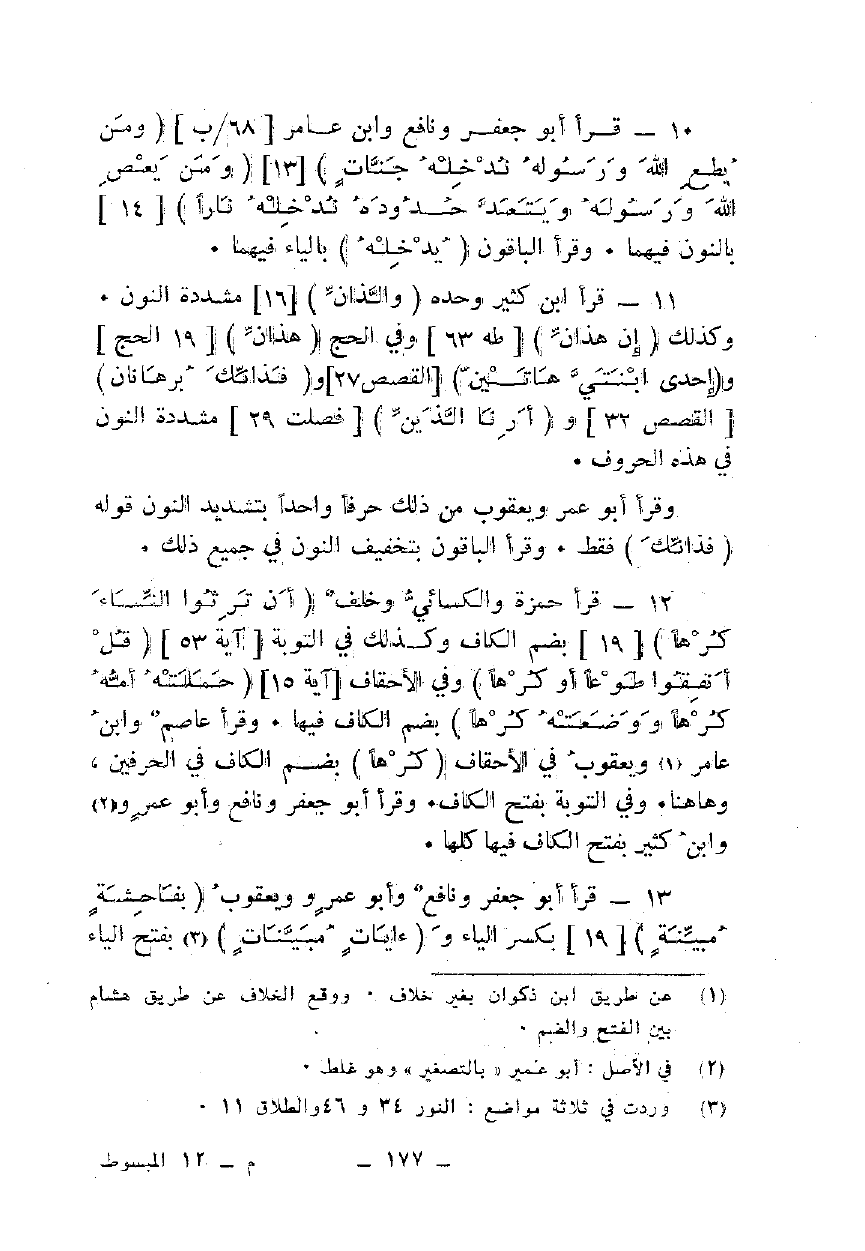 ١٠ ــ قـــرأ أبو جعفـــر ونافع وابن عـــامر [ ٦٨/ب ] ( ومَن
يُطِعِ اللهَ وَرَسُولَهُ نُدْخِلْهُ جَنَّاتٍ ) [١٣] ( وَمَن يَعْصِ
اللهَ وَرَسُولَهُ وَيَتَعَدَّ حُـــدُودَهُ نُدْخِلْهُ نَاراً ) [ ١٤ ]
بالنون فيهما ٠ وقرأ الباقون ( يُدْخِلْهُ ) بالياء فيهما ٠
١١ ــ قرأ ابن كثير وحده ( والَّذانِّ ) [١٦] مشددة النون ٠
وكذلك ( إن هذانِّ ) [ طه ٦٣ ] وفي الحج ( هذانِّ ) [ ١٩ الحج ]
و(إحدى ابْنَتَيَّ هَاتَـــيْنِّ) [القصص٢٧]و( فَذَانِّكَ بُرهَانان)
[ القصص ٣٢ ] و ( أَرِنَا الَّذَينِّ ) [ فصلت ٢٩ ] مشددة النون
في هذه الحروف ٠
وقرأ أبو عمر ويعقوب من ذلك حرفاً واحداً بتشديد النون قوله
( فذانِّكَ ) فقط ٠ وقرأ الباقون بتخفيف النون في جميع ذلك ٠
١٢ ــ قرأ حمزة والكسائيُّ وخلفٌ ( أَن تَرِثُوا النِّسَـــاءَ
كُرْهاً ) [ ١٩ ] بضم الكاف وكـــذلك في التوبة [ آية ٥٣ ] ( قُلْ
أَنفِقُوا طَوْعاً أو كُرْهاً ) وفي الأحقاف [آية ١٥] ( حَمَلَتْهُ أمُّهُ
كُرْهاً وَوَضَعَتْهُ كُرْهاً ) بضم الكاف فيها ٠ وقرأ عاصمٌ وابنُ
عامر (١) ويعقوبُ في الأحقاف ( كُرْهاً ) بضـــم الكاف في الحرفين ،
وهاهنا٠ وفي التوبة بفتح الكاف٠ وقرأ أبو جعفر ونافع وأبو عمرٍو(٢)
وابنُ كثير بفتح الكاف فيها كلها ٠
١٣ ــ قرأ أبو جعفر ونافعٌ وأبو عمرٍو ويعقوبُ ( بفَاحِشَةٍ
مُبيِّنَةٍ ) [ ١٩ ] بكسر الياء وَ ( ءايَاتٍ مُبَيَّنَاتٍ ) (٣) بفتح الياء
(١) عن طريق ابن ذكوان بغير خلاف ٠ ووقع الخلاف عن طريق هشام
بين الفتح والضم ٠
(٢) في الأصل : أبو عُمير « بالتصغير » وهو غلط ٠
(٣) وردت في ثلاثة مواضع : النور ٣٤ و ٤٦والطلاق ١١ ٠
ــ ١٧٧ ــ
م ــ ١٢ المبسوط